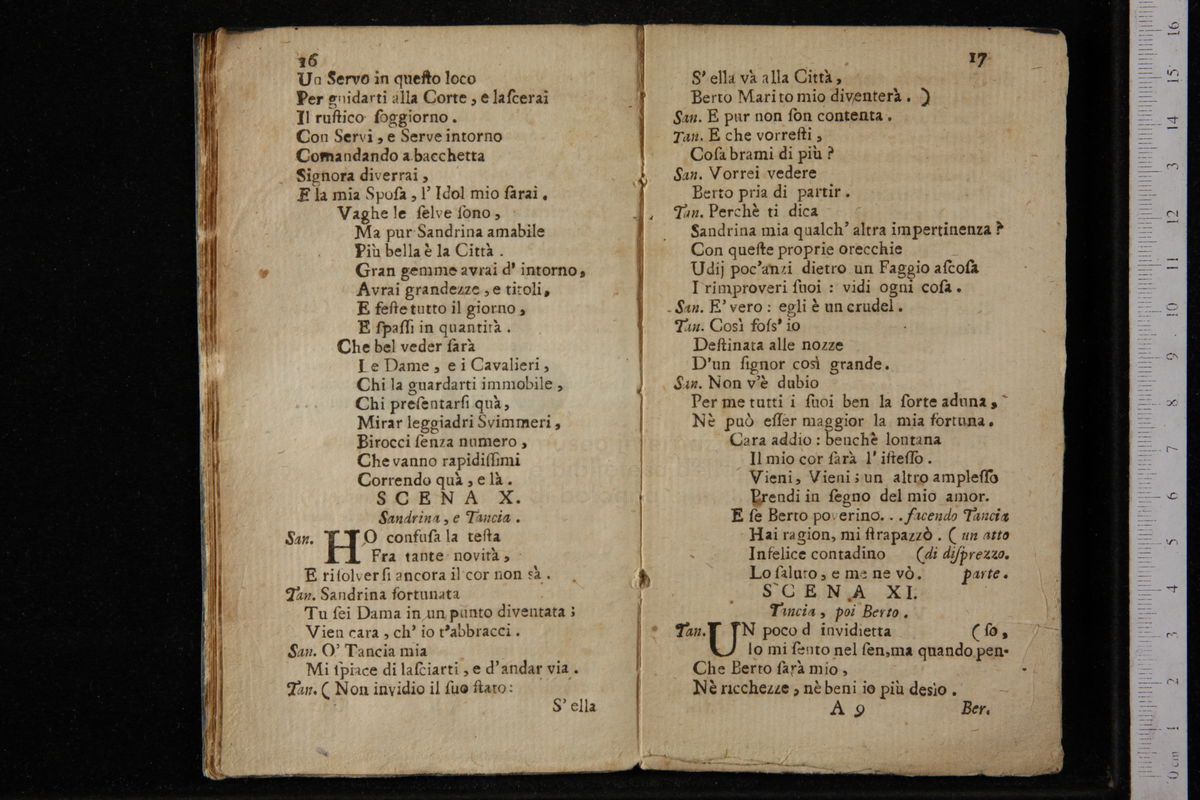 16
Un Servo in queſto loco
Per guidarti alla Corte, e laſcerai
Il ruſtico ſoggiorno.
Con Servi, e Serve intorno
Comandando a bacchetta
Signora diverrai,
E la mia Spoſa, l' Idol mio ſarai.
Vaghe le ſelve ſono,
Ma pur Sandrina amabile
Più bella è la Città.
Gran gemme avrai d' intorno,
Avrai grandezze, e titoli,
E feſte tutto il giorno,
E ſpaſſi in quantità.
Che bel veder ſarà
Le Dame, e i Cavalieri,
Chi la guardarti immobile,
Chi preſentarſi quà,
Mirar leggiadri Svimmeri,
Birocci ſenza numero,
Che vanno rapidiſſimi
Correndo quà, e là.
SCENA X.
Sandrina, e Tancia.
San. HO confuſa la teſta
Fra tante novità,
E riſolverſi ancora il cor non sà.
Tan. Sandrina fortunata
Tu ſei Dama in un punto diventata;
Vien cara, ch' io t'abbracci.
San. O' Tancia mia
Mi ſpiace di laſciarti, e d'andar via.
Tan. (Non invidio il ſuo ſtato:
S' ella
17
S' ella và alla Città,
Berto Marito mio diventerà. )
San. E pur non ſon contenta.
Tan. E che vorreſti,
Coſa brami di più?
San. Vorrei vedere
Berto pria di partir.
Tan. Perchè ti dica
Sandrina mia qualch' altra impertinenza?
Con queſte proprie orecchie
Udij poc'anzi dietro un Faggio aſcoſa
I rimproveri ſuoi: vidi ogni coſa.
San. E' vero: egli è un crudel.
Tan. Così foſs' io
Deſtinata alle nozze
D'un ſignor così grande.
San. Non v'è dubio
Per me tutti i ſuoi ben la ſorte aduna,
Nè può eſſer maggior la mia fortuna.
Cara addio: benchè lontana
Il mio cor ſarà l' iſteſſo.
Vieni, Vieni; un altro ampleſſo
Prendi in ſegno del mio amor.
E ſe Berto poverino... facendo Tancia
Hai ragion, mi ſtrapazzò. (un atto
Infelice contadino (di diſprezzo.
Lo ſaluto, e me ne vò. parte.
SCENA XI.
Tancia, poi Berto.
Tan. UN poco d invidietta (ſo,
Io mi ſento nel ſen, ma quando pen-
Che Berto ſarà mio,
Nè ricchezze, nè beni io più desìo.
A 9 Ber.